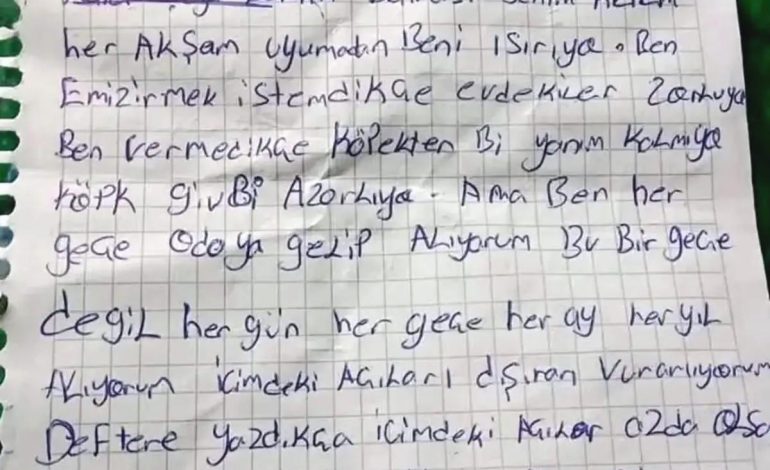 her AKŞam Uyumadan Beni ısırıya. Ben
Emizirmek istemdikae evdekiler Zorluya
Ben vermedikae Köpekten Bi yanım Kalmıya
Köpk givBi Azarlıya. Ama Ben her
geae Odaya gelip ALıyorum Bu Bir geae
degiL her gün her geae her ay heryıL
ALıyorum icimdeki Acıları dışıran Vurarlıyorum
Deftere yazdıkaa icimdeki Acılar azda Olsa